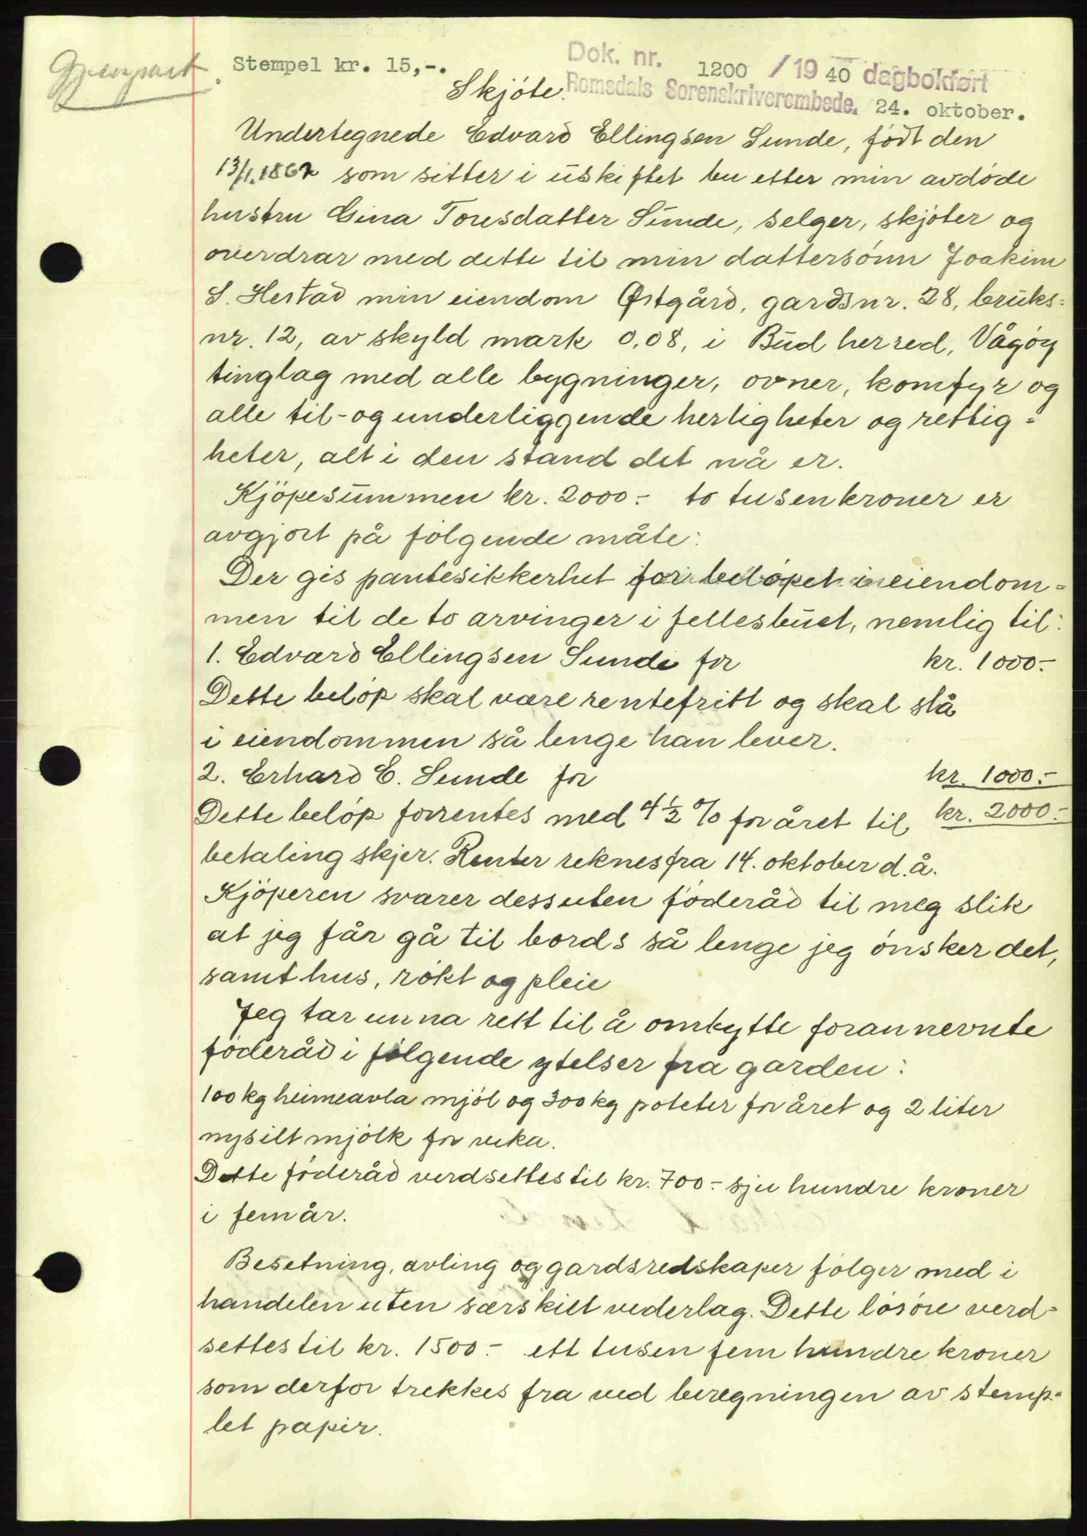 Gjenpart.
Stempel kr. 15,-.
Dok. nr. 1200 / 19 40 dagbokført
Romsdals Sorenskriverembede. 24. oktober.
Skjøte.
Undertegnede Edvard Ellingsen Sunde, født den
13/1.1862 som sitter i uskiftet bu etter min avdøde
hustru Gina Toresdatter Sunde, selger, skjøter og
overdrar med dette til min dattersønn Joakim
S. Hestad min eiendom Østgård, gardsnr. 28, bruks=
nr. 12, av skyld mark 0,08, i Bud herred, Vågøy
tinglag med alle bygninger, ovner, komfyr og
alle til- og underliggende herligheter og rettig=
heter, alt i den stand det nå er.
Kjöpesummen kr. 2000.- to tusen kroner er
avgjort på følgende måte:
Der gis pantesikkerhet for beløpet i eiendom=
men til de to arvinger i fellesbuet, nemlig til:
1. Edvard Ellingsen Sunde for kr. 1000.-
Dette beløp skal være rentefritt og skal stå
i eiendommen så lenge han lever.
2. Erhard E. Sunde for kr. 1000.-
Dette beløp forrentes med 4 1/2 % for året til kr. 2000.-
betaling skjer. Renter reknes fra 14. oktober d.å.
Kjöperen svarer dessuten føderåd til meg slik
at jeg får gå til bords så lenge jeg ønsker det,
samt hus, røkt og pleie
Jeg tar unna rett til å ombytte forannevnte
føderåd i følgende ytelser fra garden:
100 kg heimeavla mjøl og 300 kg poteter for året og 2 liter
nysilt mjølk for veka.
Dette føderåd verdsettes til kr. 700.- sju hundre kroner
i fem år.
Besetning, avling og gardsredskaper følger med i
handelen uten særskilt vederlag. Dette løsøre verd=
settes til kr. 1500.- ett tusen fem hundre kroner
som derfor trekkes fra ved beregningen av stemp=
let papir.